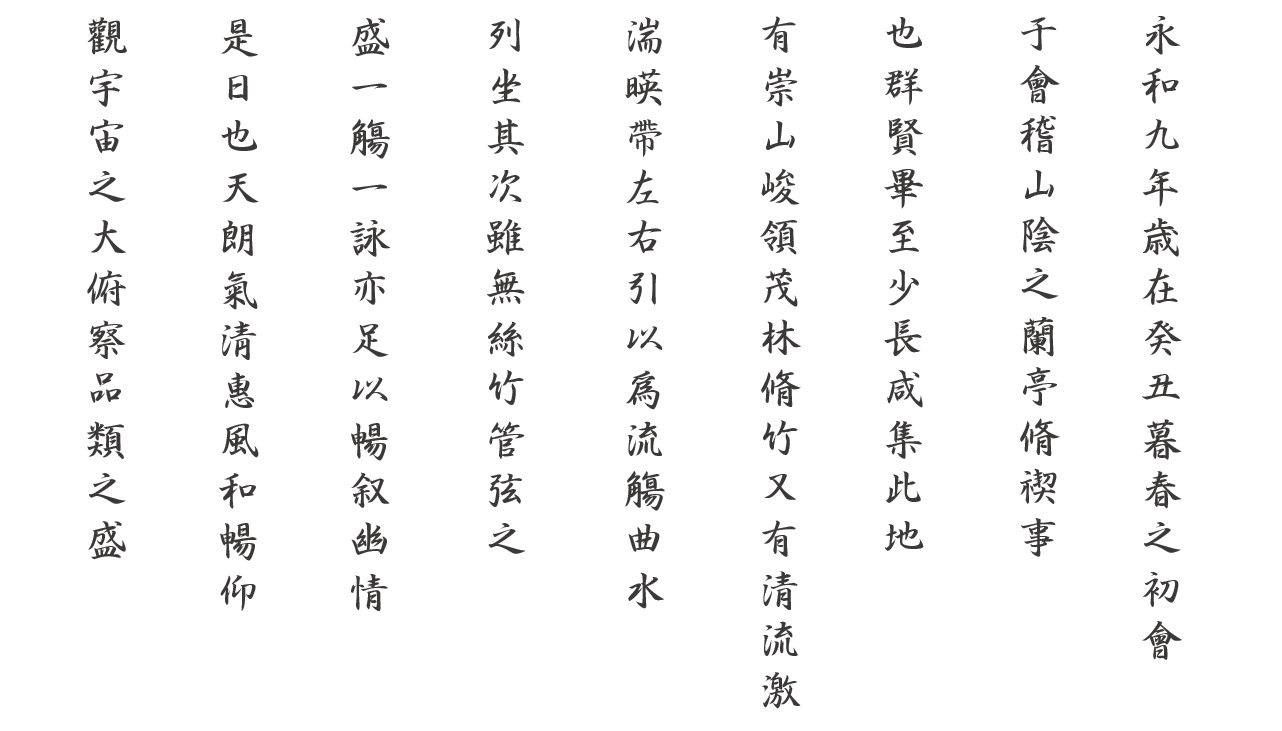 永和九年歳在癸丑暮春之初會
于會稽山陰之蘭亭脩禊事
也群賢畢至少長咸集此地
有崇山峻領茂林脩竹又有清流激
湍暎帶左右引以爲流觴曲水
列坐其次雖無絲竹管弦之
盛一觴一詠亦足以暢叙幽情
是日也天朗氣清惠風和暢仰
觀宇宙之大俯察品類之盛